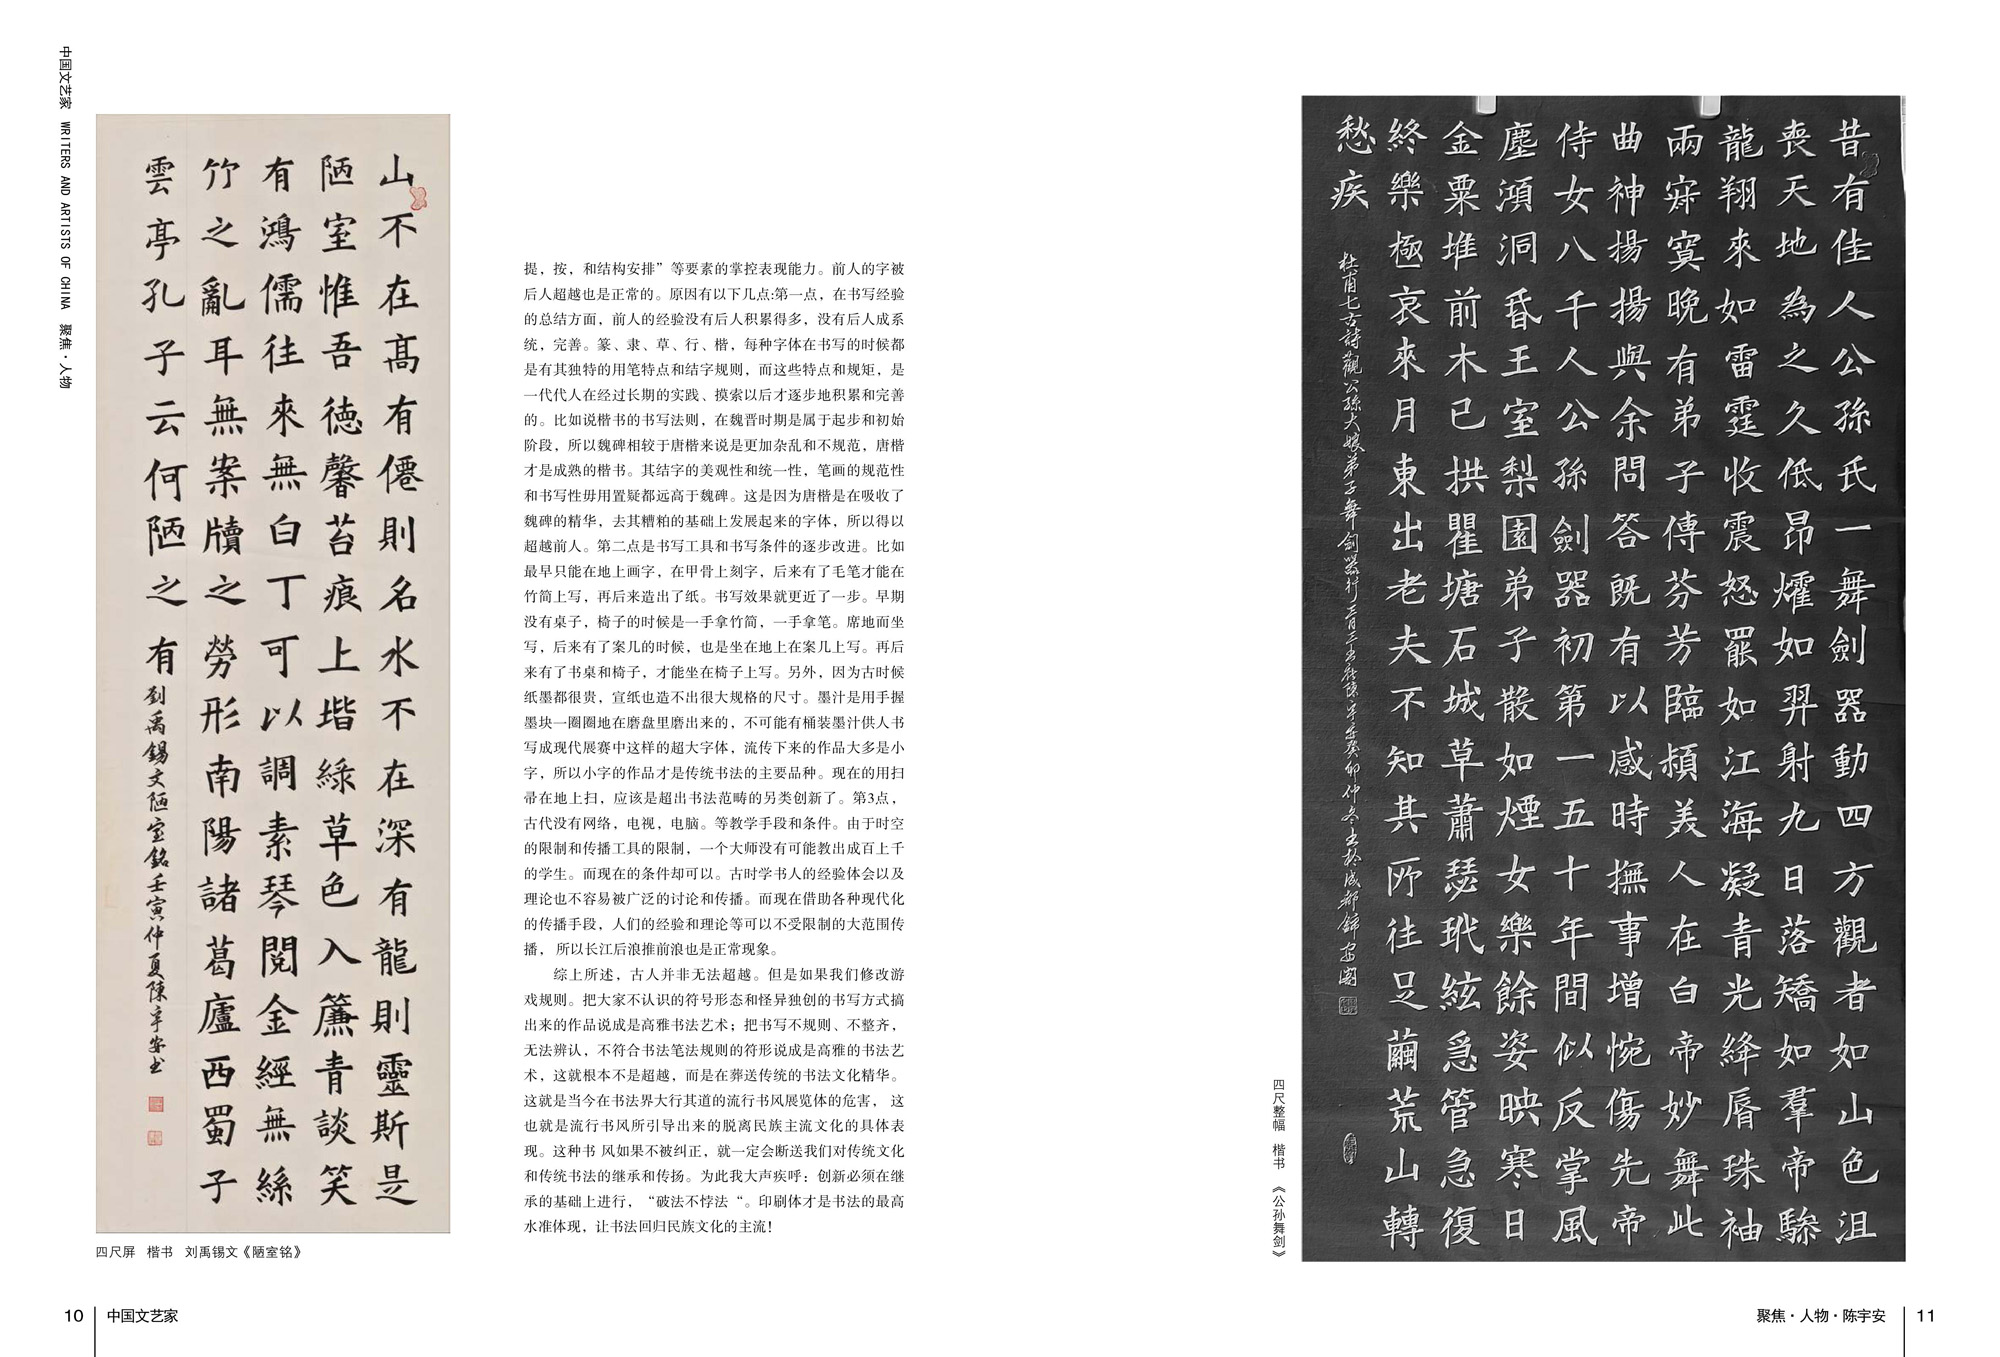 中国文艺家 WRITERS AND ARTISTS OF CHINA 聚焦·人物
山不在高有僊則名水不在深有龍則靈斯是
陋室惟吾德馨苔痕上堦綠草色入簾青談笑
有鴻儒往來無白丁可以調素琴閱金經無絲
竹之亂耳無案牘之勞形南陽諸葛廬西蜀子
雲亭孔子云何陋之有
劉禹錫文陋室銘壬寅仲夏陳宇安书
四尺屏 楷书 刘禹锡文《陋室铭》
提，按，和结构安排”等要素的掌控表现能力。前人的字被
后人超越也是正常的。原因有以下几点:第一点，在书写经验
的总结方面，前人的经验没有后人积累得多，没有后人成系
统，完善。篆、隶、草、行、楷，每种字体在书写的时候都
是有其独特的用笔特点和结字规则，而这些特点和规矩，是
一代代人在经过长期的实践、摸索以后才逐步地积累和完善
的。比如说楷书的书写法则，在魏晋时期是属于起步和初始
阶段，所以魏碑相较于唐楷来说是更加杂乱和不规范，唐楷
才是成熟的楷书。其结字的美观性和统一性，笔画的规范性
和书写性毋用置疑都远高于魏碑。这是因为唐楷是在吸收了
魏碑的精华，去其糟粕的基础上发展起来的字体，所以得以
超越前人。第二点是书写工具和书写条件的逐步改进。比如
最早只能在地上画字，在甲骨上刻字，后来有了毛笔才能在
竹简上写，再后来造出了纸。书写效果就更近了一步。早期
没有桌子，椅子的时候是一手拿竹简，一手拿笔。席地而坐
写，后来有了案几的时候，也是坐在地上在案几上写。再后
来有了书桌和椅子，才能坐在椅子上写。另外，因为古时候
纸墨都很贵，宣纸也造不出很大规格的尺寸。墨汁是用手握
墨块一圈圈地在磨盘里磨出来的，不可能有桶装墨汁供人书
写成现代展赛中这样的超大字体，流传下来的作品大多是小
字，所以小字的作品才是传统书法的主要品种。现在的用扫
帚在地上扫，应该是超出书法范畴的另类创新了。第3点，
古代没有网络，电视，电脑。等教学手段和条件。由于时空
的限制和传播工具的限制，一个大师没有可能教出成百上千
的学生。而现在的条件却可以。古时学书人的经验体会以及
理论也不容易被广泛的讨论和传播。而现在借助各种现代化
的传播手段，人们的经验和理论等可以不受限制的大范围传
播， 所以长江后浪推前浪也是正常现象。
综上所述，古人并非无法超越。但是如果我们修改游
戏规则。把大家不认识的符号形态和怪异独创的书写方式搞
出来的作品说成是高雅书法艺术；把书写不规则、不整齐，
无法辨认，不符合书法笔法规则的符形说成是高雅的书法艺
术，这就根本不是超越，而是在葬送传统的书法文化精华。
这就是当今在书法界大行其道的流行书风展览体的危害， 这
也就是流行书风所引导出来的脱离民族主流文化的具体表
现。这种书 风如果不被纠正，就一定会断送我们对传统文化
和传统书法的继承和传扬。为此我大声疾呼：创新必须在继
承的基础上进行，“破法不悖法“。印刷体才是书法的最高
水准体现，让书法回归民族文化的主流！
昔有佳人公孫氏一舞劍器動四方觀者如山色沮
喪天地為之久低昂㸌如羿射九日落矯如羣帝驂
龍翔來如雷霆收震怒罷如江海凝青光絳脣珠袖
兩寂寞晚有弟子傳芬芳臨潁美人在白帝妙舞此
曲神揚揚與余問答既有以感時撫事增惋傷先帝
侍女八千人公孫劍器初第一五十年間似反掌風
塵澒洞昏王室梨園弟子散如煙女樂餘姿映寒日
金粟堆前木已拱瞿塘石城草蕭瑟玳絃急管急復
終樂極哀來月東出老夫不知其所往足繭荒山轉
愁疾
杜甫七古詩觀公孫大娘弟子舞劍器行 陳宇安癸卯仲冬书於成都錦
四尺整幅 楷书 《公孙舞剑》
10 中国文艺家
聚焦·人物·陈宇安 11